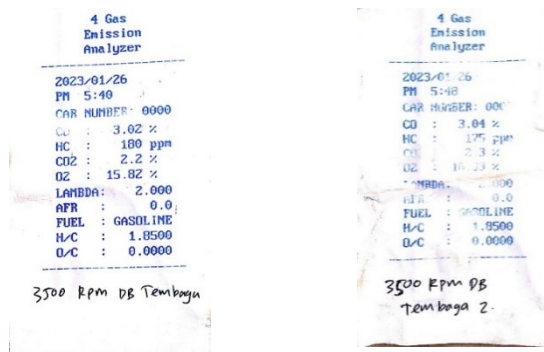 4 Gas
Emission
Analyzer
2023/01/26
PM 5:40
CAR NUMBER: 0000
CO : 3.02 %
HC : 180 ppm
CO2 : 2.2 %
O2 : 15.82 %
LAMBDA: 2.000
AFR : 0.0
FUEL : GASOLINE
H/C : 1.8500
O/C : 0.0000
3500 Rpm DB Tembaga
4 Gas
Emission
Analyzer
2023/01 26
PM 5:48
CAR NUMBER: 000
CO : 3.04 %
HC : 175 ppm
CO 2.3 %
O2 : %
LAMBDA: 2.000
AFR : 0.0
FUEL : GASOLINE
H/C : 1.8500
O/C : 0.0000
3500 RPM DB
Tembaga 2.